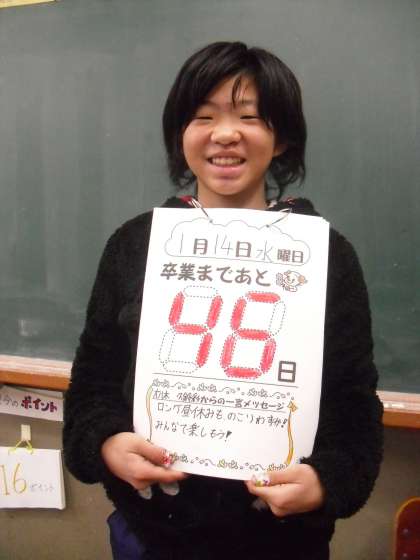 1月14日水曜日
卒業まであと
45日
からの一言メッセージ
ロング昼休みも のこりわずか!
みんなで楽しもう!
今のポイント
16ポイント